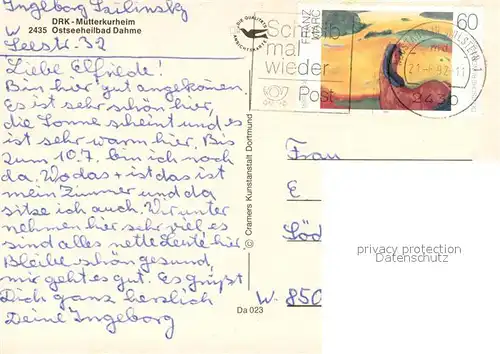 Ingeborg
DRK - Mutterkurheim
W 2435 Ostseeheilbad Dahme
Seestr. 32
Liebe Elfriede!
Bin hier gut angekommen.
Es ist sehr schön hier,
die Sonne scheint und es
ist sehr warm hier. Bis
zum 10.7. bin ich noch
da. Wo das + ist das ist
mein Zimmer und da
sitze ich auch. Wir unter
nehmen hier sehr viel, es
sind alles nette Leute hier
Bleibe schön gesund,
mir geht es gut. Es grüßt
Dich ganz herzlich
Deine Ingeborg
DIE QUALITÄTS
ANSICHTSKARTE
© Cramers Kunstanstalt Dortmund
Da 023
Schreib
mal
wieder
Post
FRANZ
MARC
60
2430
Frau
E
Söd
W- 850
privacy protection
(DSGVO)